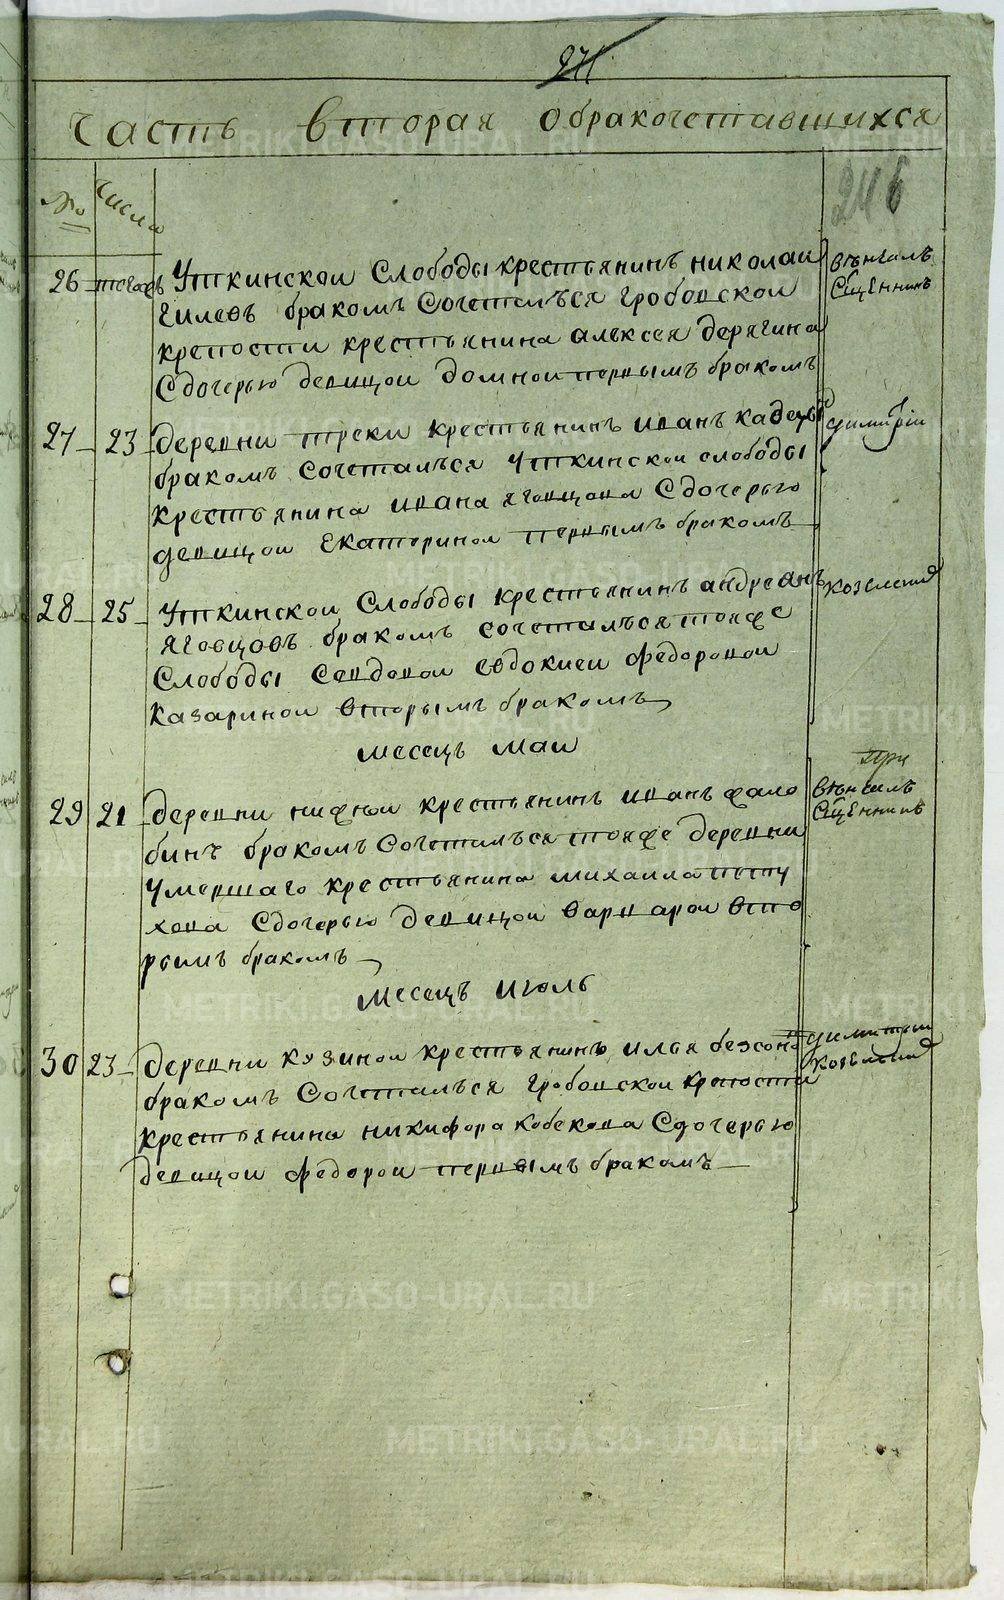 241
Часть вторая обракочетавшихся
246
№о числа
26 тогож Уткинскои Слободы крестьянинъ николаи
Гилевъ бракомъ Сочетался Гробовскои
крепости крестьянина алексея дерягина
Сдочерью девицои домнои первымъ бракомъ
венчалъ
Сщенникъ
27 23 деревни треки крестьянинъ иванъ
бракомъ сочетался Уткинскои слободы
крестьянина ивана яговцова Сдочерью
девицои Екатеринои первымъ бракомъ
димитріи
28 25 Уткинскои Слободы крестьянинъ андреянъ
Яговцовъ бракомъ сочетался тояже
Слободы Свдовои евдокиеи федоровои
Казаринои вторымъ бракомъ
козелскии
месецъ маи
29 21 деревни нижнои крестьянинъ иванъ жало
бинъ бракомъ Сочетался тояже деревни
Умершаго крестьянина михаила пету
хова Сдочерью девицои варварои вто
рымъ бракомъ
при
венчалъ
Сщенникъ
месецъ июль
30 23 деревни кузинои крестьянинъ илья безсоно
бракомъ Сочетался Гробовскои крепости
крестьянина никифора кобекова Сдочерью
девицои федорои первымъ бракомъ
димитрии
козелскии
METRIKI.GASO-URAL.RU